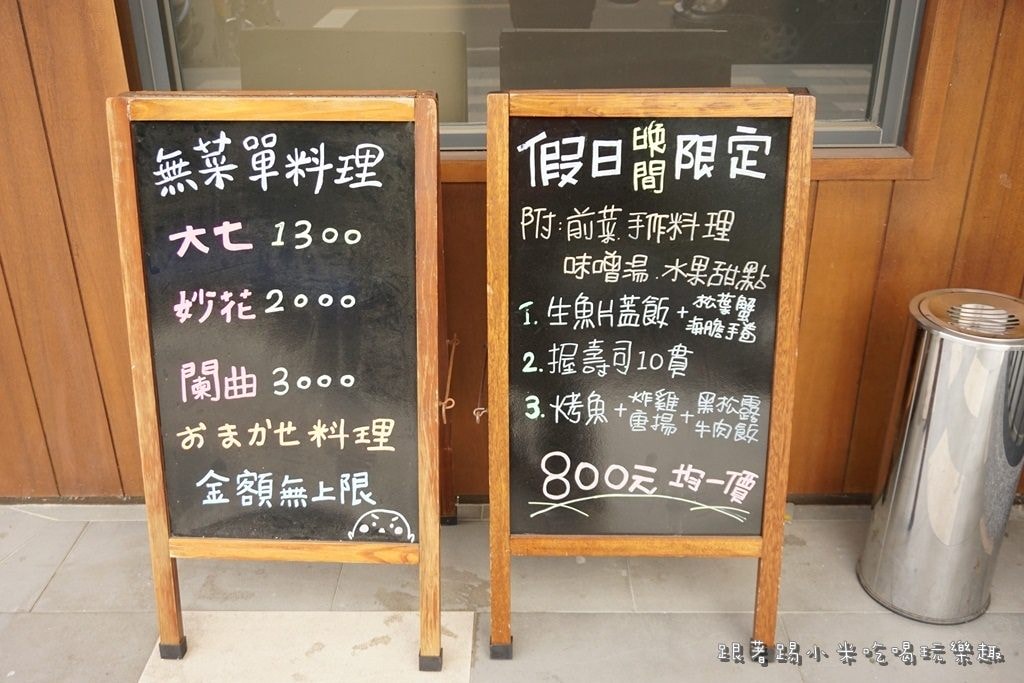 無菜單料理
大七 1300
妙花 2000
闌曲 3000
おまかせ料理
金額無上限
假日晚間限定
附:前菜.手作料理
味噌湯.水果甜點
1. 生魚片蓋飯+松葉蟹海膽手卷
2. 握壽司10貫
3. 烤魚+炸雞唐揚+黑松露牛肉飯
800元均一價
跟著踢小米吃喝玩樂趣